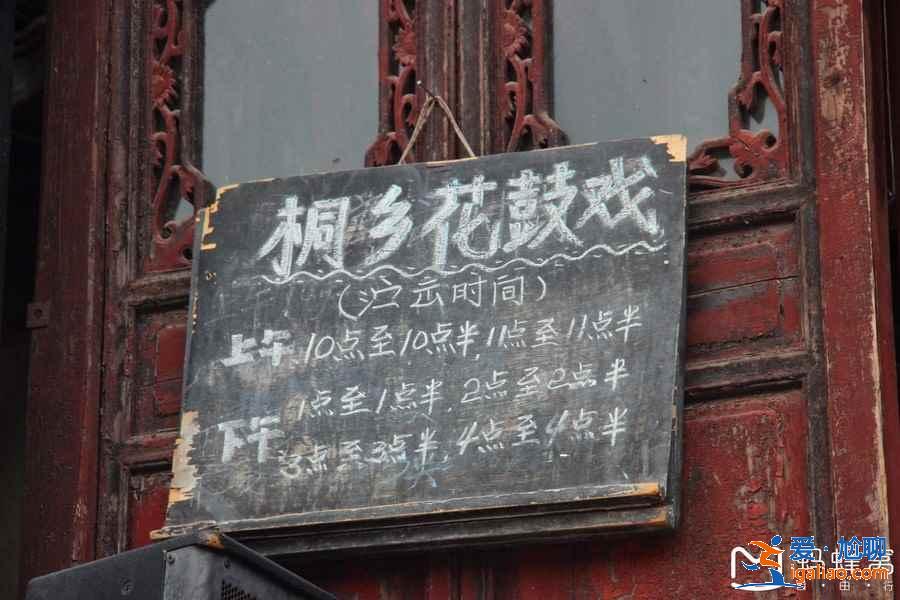 桐乡花鼓戏
(沪云时间)
上午 10点至10点半,11点至11点半
1点至1点半,2点至2点半
下午
3点至3点半,4点至4点半
爱尬聊
igaliao.com